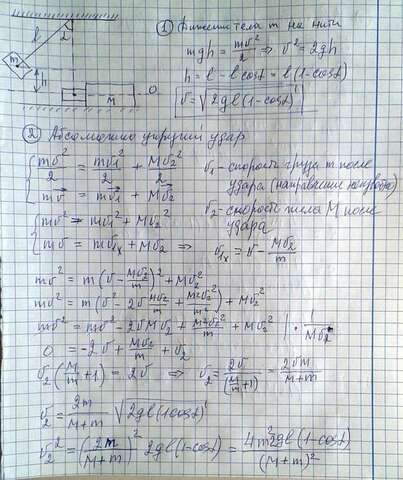 l
α
m
h
M
① Движение тела m на нити
mgh = mυ²/2 ⇒ υ² = 2gh
h = l - l cosα = l(1 - cosα)
υ = √(2gl(1-cosα))
② Абсолютно упругий удар
mυ²/2 = mυ₁²/2 + Mυ₂²/2
υ₁ - скорость груза m после удара (направление
mυ⃗ = mυ⃗₁ + Mυ⃗₂
υ₂ - скорость тела M после удара
mυ² = mυ₁² + Mυ₂²
mυ = mυ₁ₓ + Mυ₂ ⇒ υ₁ₓ = υ - Mυ₂/m
mυ² = m(υ - Mυ₂/m)² + Mυ₂²
mυ² = m(υ² - 2υ Mυ₂/m + M²υ₂²/m²) + Mυ₂²
mυ² = mυ² - 2υMυ₂ + M²υ₂²/m + Mυ₂² | · 1/Mυ₂
0 = -2υ + Mυ₂/m + υ₂
υ₂(M/m + 1) = 2υ ⇒ υ₂ = 2υ/(M/m + 1) = 2υm/(M+m)
υ₂ = 2m/(M+m) √(2gl(1-cosα))
υ₂² = (2m/(M+m))² 2gl(1-cosα) = 4m²2gl(1-cosα)/(M+m)²